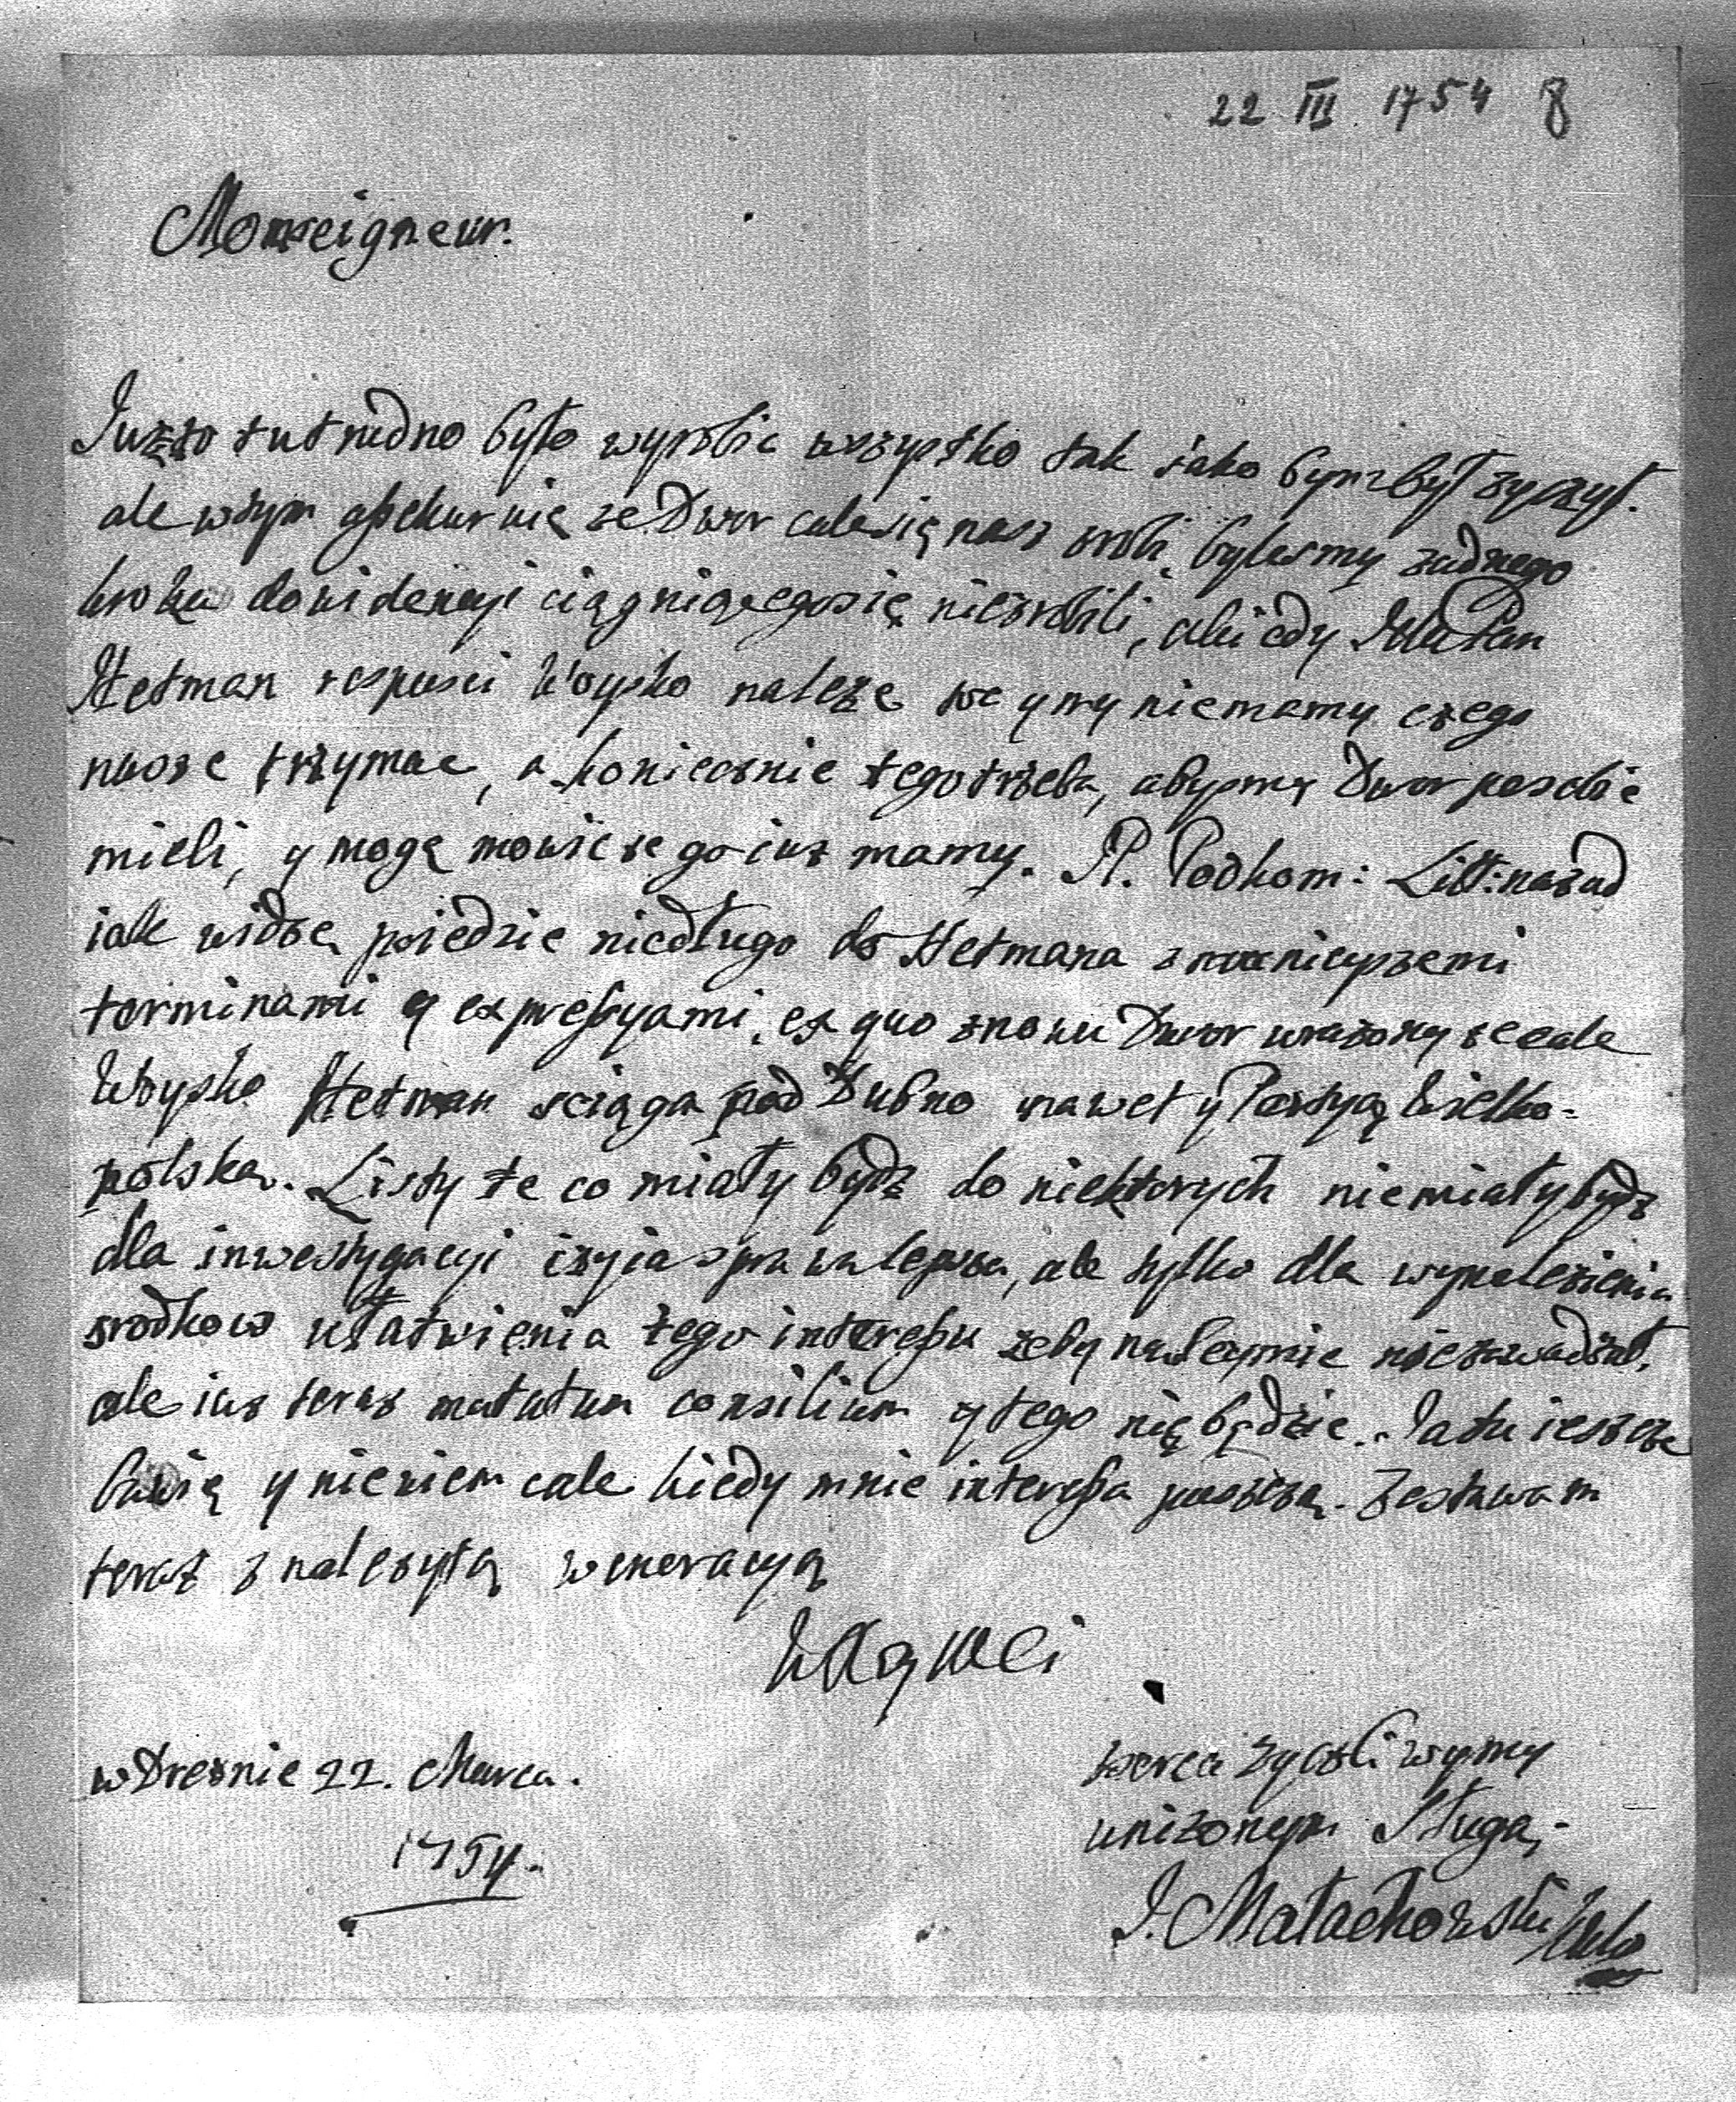 22 III 1754 8
Monseigneur.
Iuzto tu trudno było wyrobic wszystko tak iako bym był zyczył.
ale wtym assekuruię ze Dwor cale się nasz zrobi, bylesmy zadnego
kroku do widencyi ciągniącego się niezrobili, a kiedy JMć Pan
Hetman rospusci Woysko nalezę ze y my niemamy czego
nasze trzymac, a koniecznie tego trzeba, abysmy Dwor po sobie
mieli, y mogę mowic ze go iuz mamy. P. Podkom: Litt: nazad
iak widzę poiedzie niedługo do Hetmana z mocnieyszemi
terminami y expressyami, ex quo znowu Dwor urazony ze cale
Woysko Hetman sciąga pod Dubno nawet y Partyą Wielko-
polską. Listy te co miały bydz do niektorych niemiały bydz
dla inwestygacyi czyia sprawa lepsza, ale tylko dla wynalezienia
srodkow ułatwienia tego interessu zeby na Seymie niezawadzał,
ale iuz teraz mutatum consilium y tego nie będzie. Ia tu ieszcze
bawię y niewiem cale kiedy mnie interessa puszczą. Zostawam
teraz z nalezytą weneracyą
w Dreznie 22. Marca.
1754.
serca zyczliwym y
unizonym Sługą
J. Małachowski